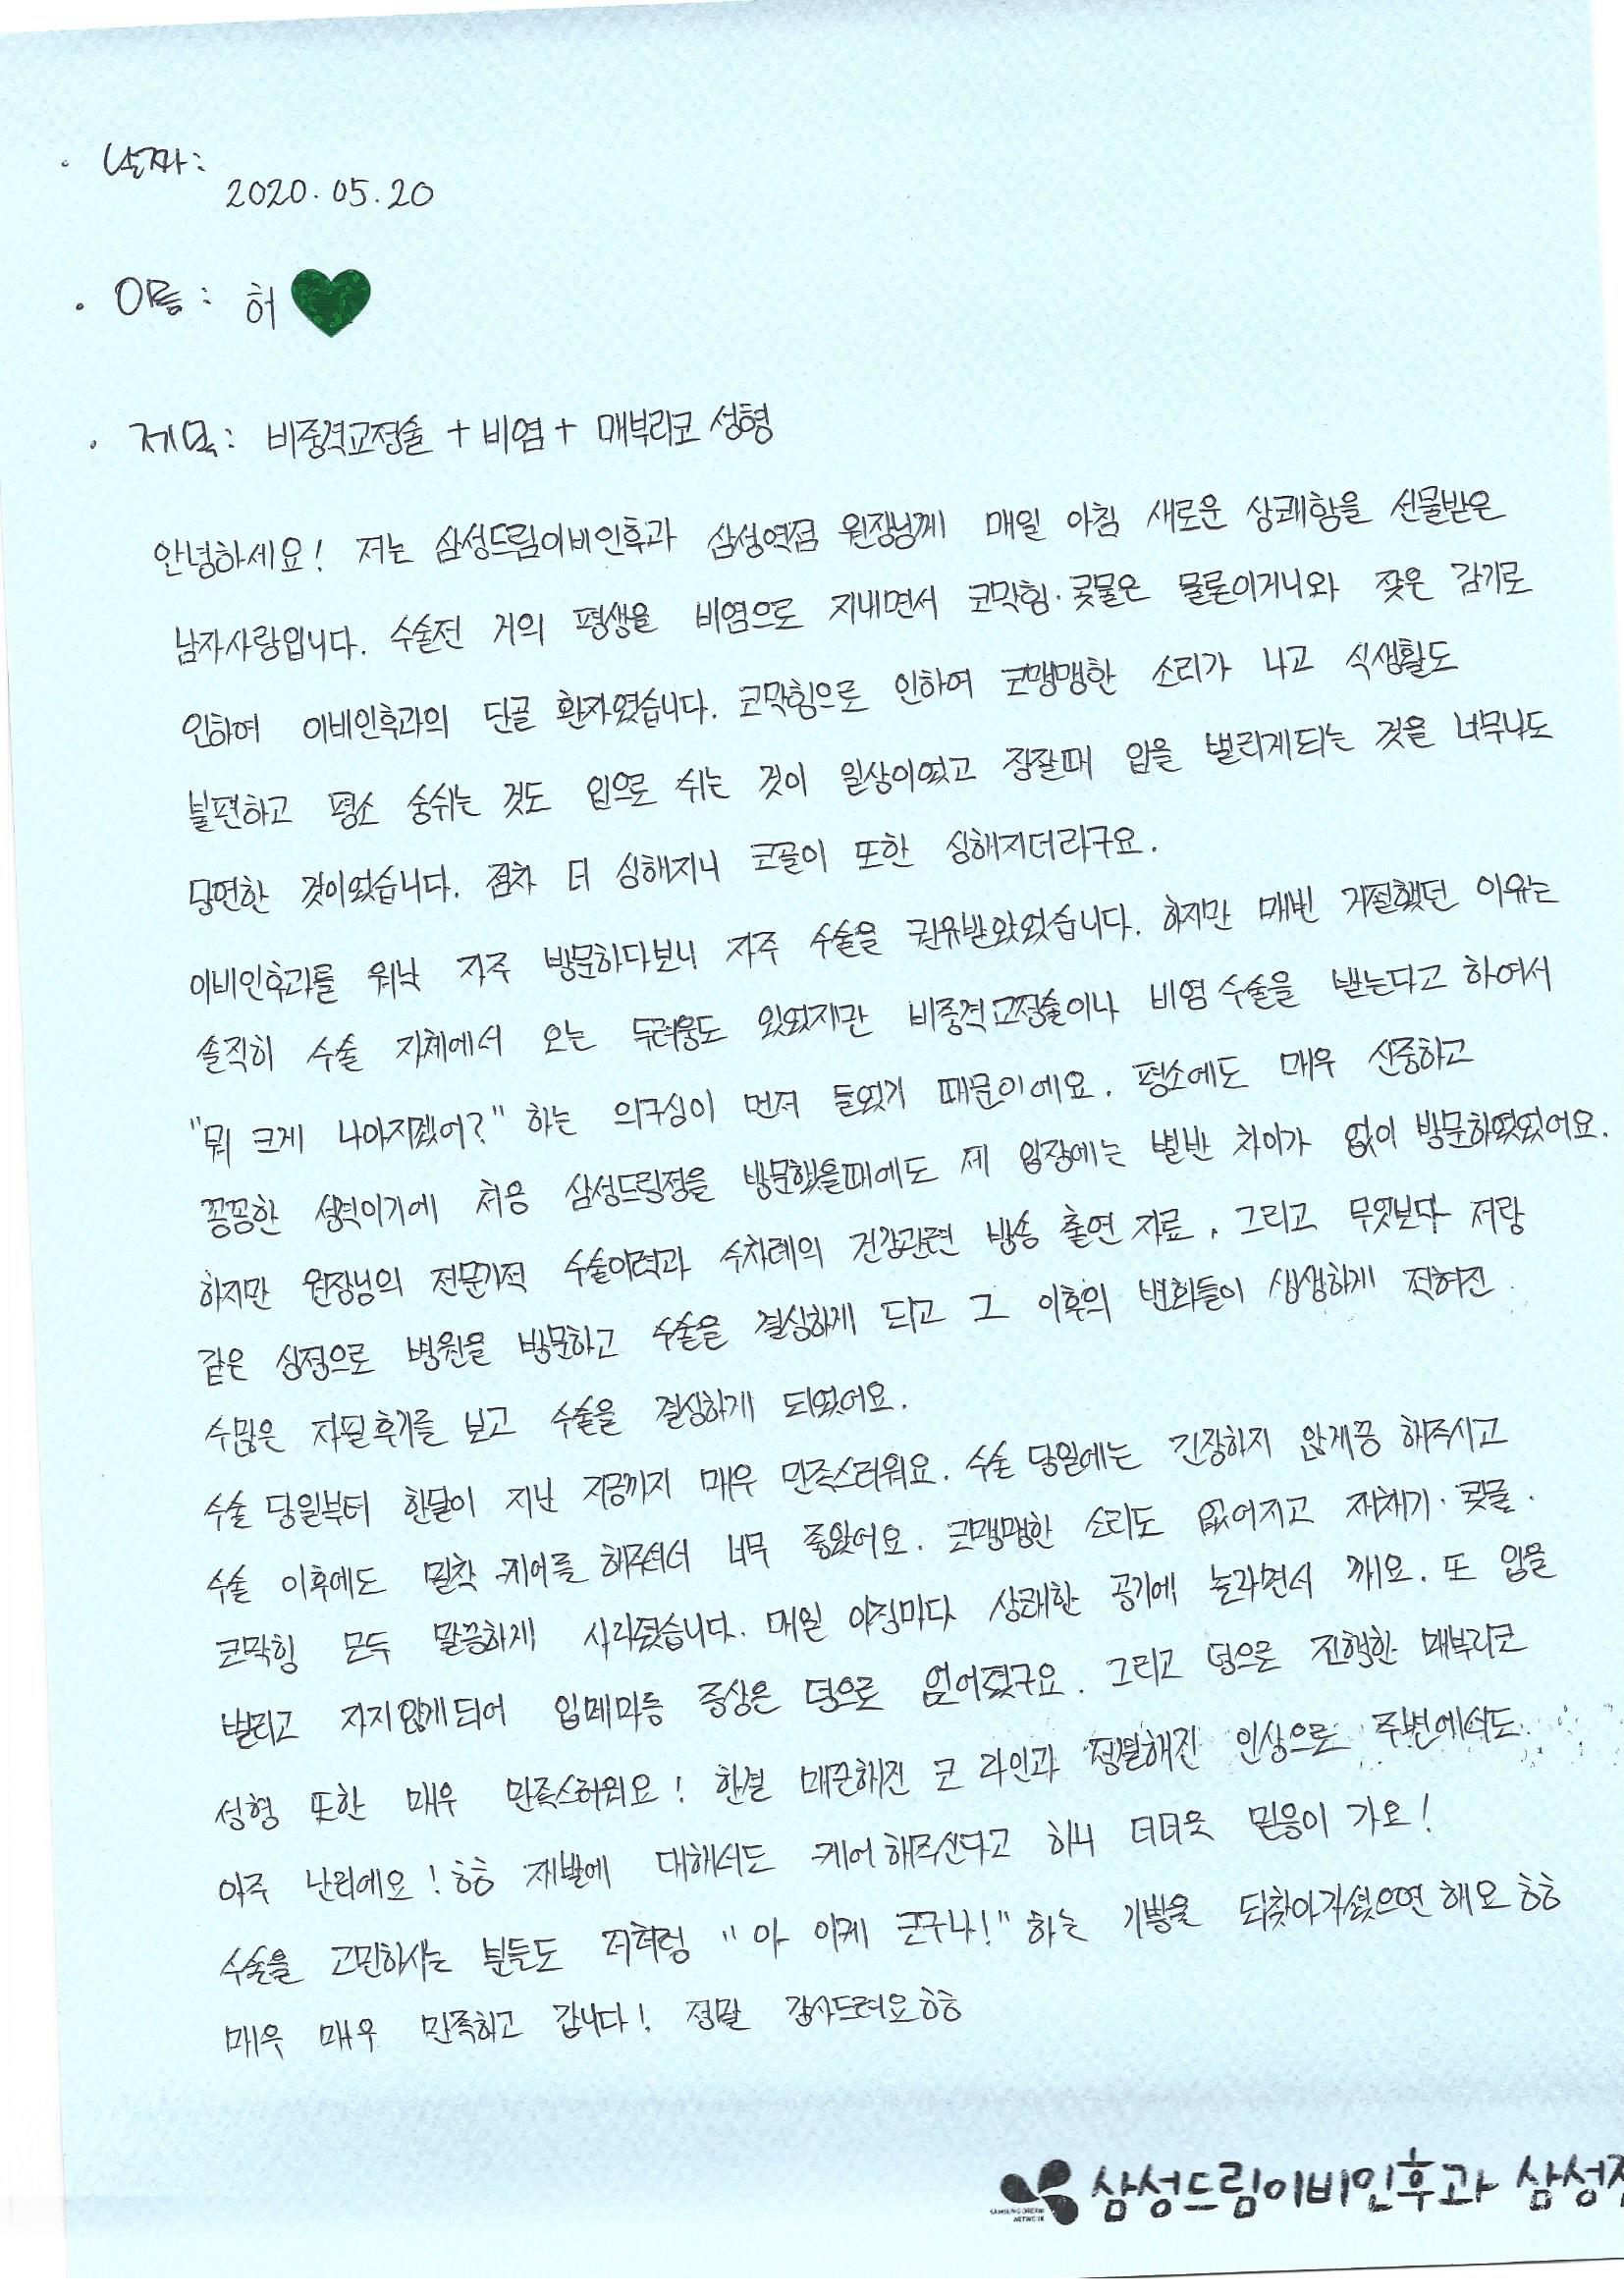 · 날짜:
2020. 05. 20
· 이름 : 허
· 제목: 비중격교정술 + 비염 + 매부리코 성형
안녕하세요! 저는 삼성드림이비인후과 삼성역점 원장님께 매일 아침 새로운 상쾌함을 선물받은
남자사람입니다. 수술전 거의 평생을 비염으로 지내면서 코막힘·콧물은 물론이거니와 잦은 감기로
인하여 이비인후과의 단골 환자였습니다. 코막힘으로 인하여 코맹맹한 소리가 나고 식생활도
불편하고 평소 숨쉬는 것도 입으로 쉬는 것이 일상이었고 잠잘때 입을 벌리게되는 것을 너무나도
당연한 것이었습니다. 점차 더 심해지니 코골이 또한 심해지더라구요.
이비인후과를 워낙 자주 방문하다보니 자주 수술을 권유받았었습니다. 하지만 매번 거절했던 이유는
솔직히 수술 자체에서 오는 두려움도 있었지만 비중격교정술이나 비염 수술을 받는다고 하여서
"뭐 크게 나아지겠어?" 하는 의구심이 먼저 들었기 때문이에요. 평소에도 매우 신중하고
꼼꼼한 성격이기에 처음 삼성드림점을 방문했을때에도 제 입장에는 별반 차이가 없이 방문하였었어요.
하지만 원장님의 전문가적 수술이력과 수차례의 건강관련 방송 출연 자료, 그리고 무엇보다 저랑
같은 심정으로 병원을 방문하고 수술을 결심하게 되고 그 이후의 변화들이 생생하게 적혀진
수많은 자필후기를 보고 수술을 결심하게 되었어요.
수술 당일부터 한달이 지난 지금까지 매우 만족스러워요. 수술 당일에는 긴장하지 않게끔 해주시고
수술 이후에도 밀착 케어를 해주셔서 너무 좋았어요. 코맹맹한 소리도 없어지고 재채기·콧물·
코막힘 모두 말끔하게 사라졌습니다. 매일 아침마다 상쾌한 공기에 놀라면서 깨요. 또 입을
벌리고 자지않게되어 입메마름 증상은 덤으로 없어졌구요. 그리고 덤으로 진행한 매부리코
성형 또한 매우 만족스러워요! 한결 매끈해진 코 라인과 정돈해진 인상으로 주변에서도
아주 난리에요! ㅎㅎ 재발에 대해서도 케어해주신다고 하니 더더욱 믿음이 가요!
수술을 고민하시는 분들도 저처럼 "아 이게 코구나!" 하는 기쁨을 되찾아가셨으면 해요ㅎㅎ
매우 매우 만족하고 갑니다! 정말 감사드려요ㅎㅎ
SAMSUNG DREAM
NETWORK
삼성드림이비인후과 삼성